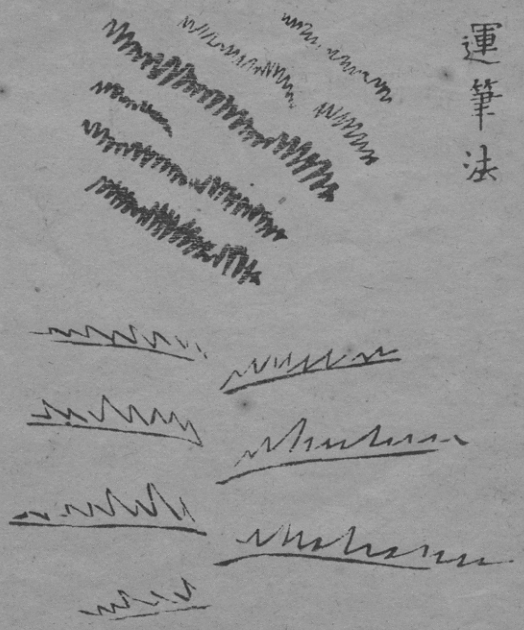 運筆法